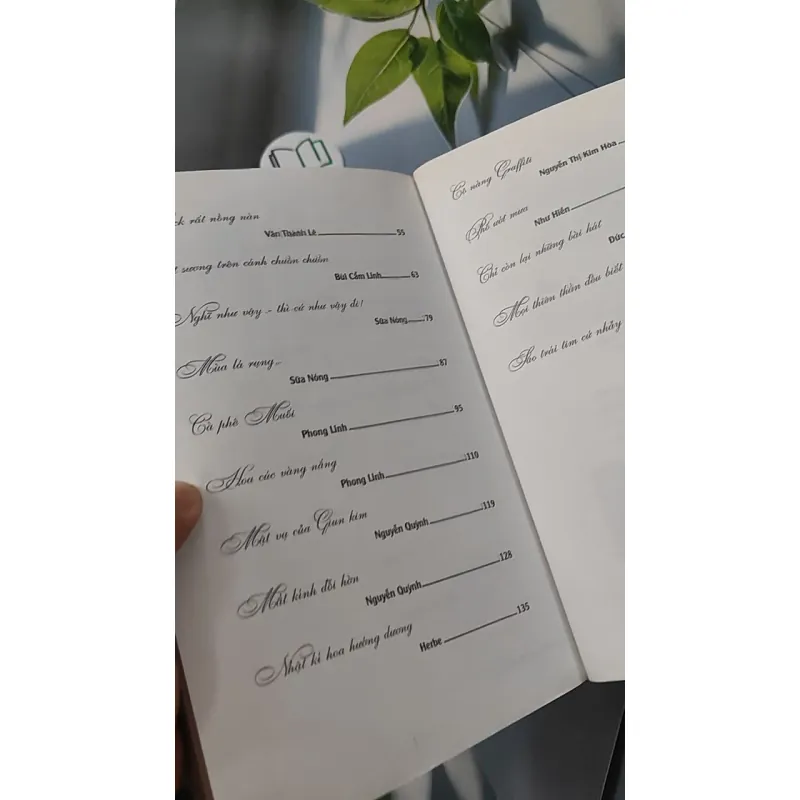 rất nồng nàn
Văn Thành Lê 55
sương trên cánh chuồn chuồn
Bùi Cẩm Linh 63
Nghĩ như vậy - thì cứ như vậy đi!
Sữa Nóng 79
Mùa lá rụng...
Sữa Nóng 87
Cà phê Muối
Phong Linh 95
Hoa cúc vàng nắng
Phong Linh 110
Mật vụ của Giun kim
Nguyễn Quỳnh 119
Mắt kính đồi hờn
Nguyễn Quỳnh 128
Nhật kí hoa hướng dương
Herbe 135
Cô nàng Graffiti
Nguyễn Thị Kim Hòa
Phố ướt mưa
Như Hiền
Chỉ còn lại những bài hát
Đức
Mọi thiên thần đều biết
Sao trái tim cứ nhảy